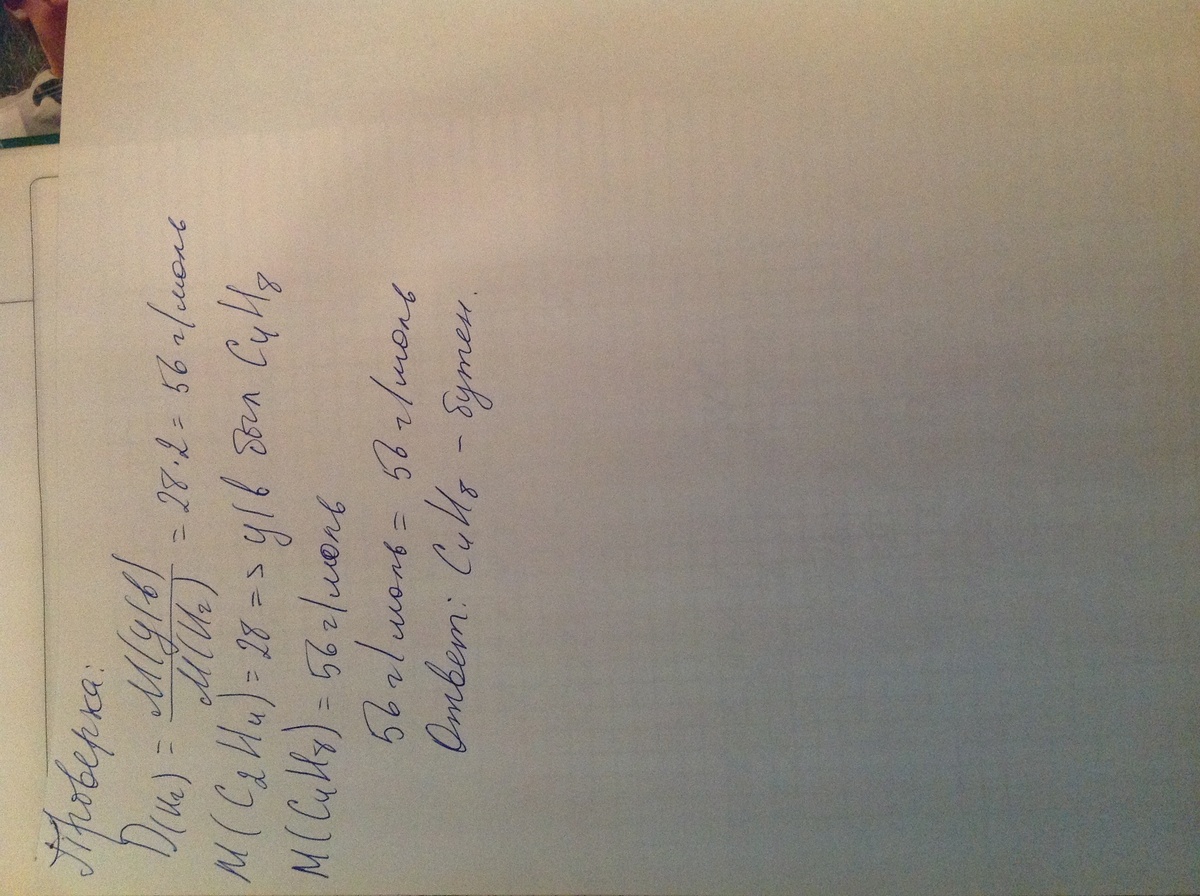 Проверка:
D(H₂) = M(у/в) / M(H₂) = 28·2 = 56 г/моль
M(C₂H₄) = 28 => у/в был C₄H₈
M(C₄H₈) = 56 г/моль
56 г/моль = 56 г/моль
Ответ: C₄H₈ – бутен.